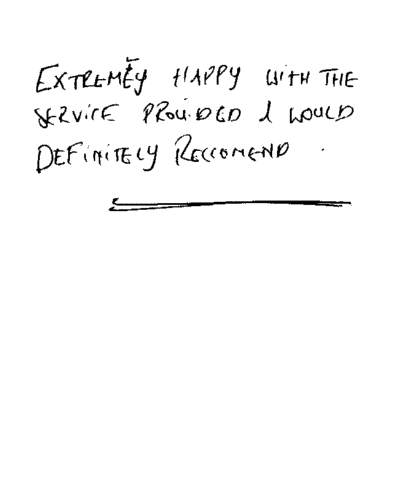 EXTREMELY HAPPY WITH THE
SERVICE PROVIDED I WOULD
DEFINITELY RECCOMEND.